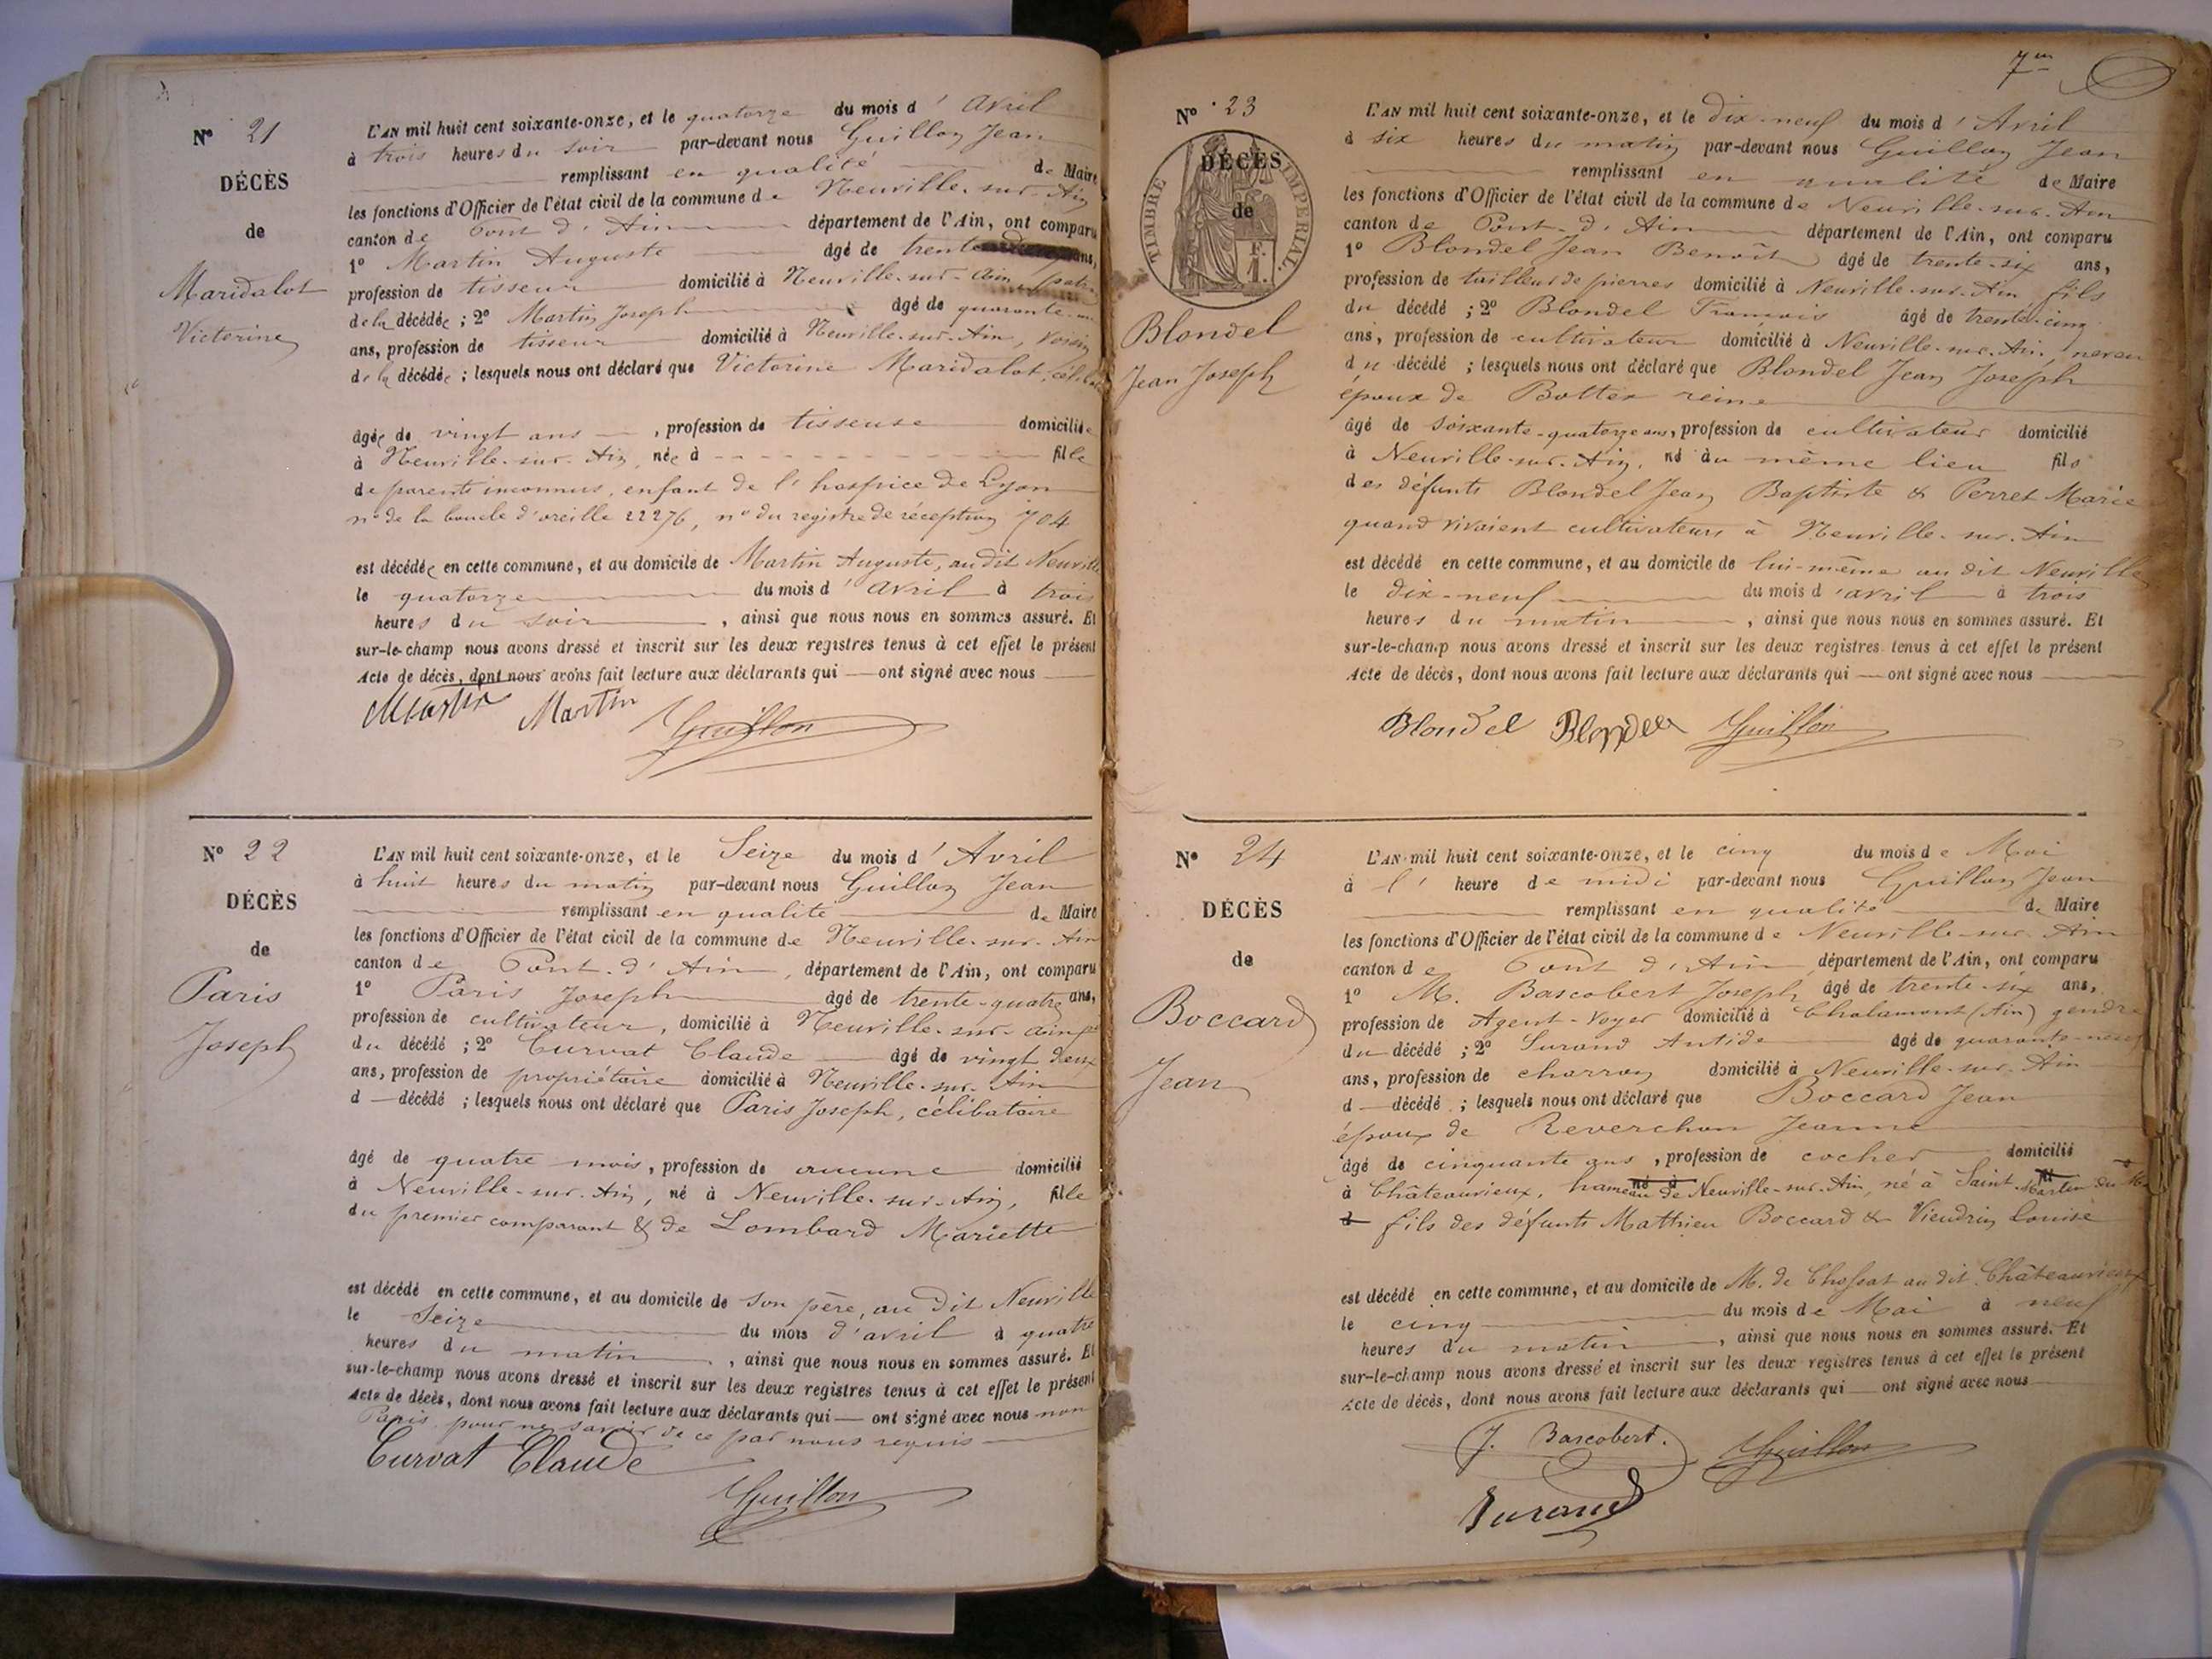 N° 21
DÉCÈS
de
Maridalot
Victorine
L'AN mil huit cent soixante-onze, et le quatorze du mois d' Avril
à trois heures du soir par-devant nous Guillon Jean
remplissant en qualité de Maire
les fonctions d'Officier de l'état civil de la commune de Neuville-sur-Ain
canton de Pont d'Ain département de l'Ain, ont comparu
1° Martin Auguste âgé de trente ans,
profession de tisseur domicilié à Neuville-sur-Ain
de la décédée ; 2° Martin Joseph âgé de quarante
ans, profession de tisseur domicilié à Neuville-sur-Ain, voisin
de la décédée ; lesquels nous ont déclaré que Victorine Maridalot,
âgée de vingt ans, profession de tisseuse domiciliée
à Neuville-sur-Ain, née à fille
de parents inconnus, enfant de l'hospice de Lyon
n° de la boucle d'oreille 22276, n° du registre de réception 704
est décédée en cette commune, et au domicile de Martin Auguste, au dit Neuville
le quatorze du mois d' avril à trois
heures du soir, ainsi que nous nous en sommes assuré. Et
sur-le-champ nous avons dressé et inscrit sur les deux registres tenus à cet effet le présent
Acte de décès, dont nous avons fait lecture aux déclarants qui — ont signé avec nous
Martin Martin Guillon
N° 22
DÉCÈS
de
Paris
Joseph
L'AN mil huit cent soixante-onze, et le Seize du mois d' Avril
à huit heures du matin par-devant nous Guillon Jean
remplissant en qualité de Maire
les fonctions d'Officier de l'état civil de la commune de Neuville-sur-Ain
canton de Pont-d'Ain, département de l'Ain, ont comparu
1° Paris Joseph âgé de trente-quatre ans,
profession de cultivateur, domicilié à Neuville-sur-Ain
du décédé ; 2° Curvat Claude âgé de vingt deux
ans, profession de propriétaire domicilié à Neuville-sur-Ain
d — décédé ; lesquels nous ont déclaré que Paris Joseph, célibataire
âgé de quatre mois, profession de aucune domicilié
à Neuville-sur-Ain, né à Neuville-sur-Ain, fils
du premier comparant & de Lombard Mariette
est décédé en cette commune, et au domicile de son père, au dit Neuville
le Seize du mois d'avril à quatre
heures du matin, ainsi que nous nous en sommes assuré. Et
sur-le-champ nous avons dressé et inscrit sur les deux registres tenus à cet effet le présent
Acte de décès, dont nous avons fait lecture aux déclarants qui — ont signé avec nous non
Paris pour ne savoir de ce par nous requis
Curvat Claude
Guillon
7
N° 23
TIMBRE IMPÉRIAL
1 F.
DÉCÈS
de
Blondel
Jean Joseph
L'AN mil huit cent soixante-onze, et le Dix-neuf du mois d' Avril
à six heures du matin par-devant nous Guillon Jean
remplissant en qualité de Maire
les fonctions d'Officier de l'état civil de la commune de Neuville-sur-Ain
canton de Pont-d'Ain département de l'Ain, ont comparu
1° Blondel Jean Benoît âgé de trente-six ans,
profession de tailleur de pierres domicilié à Neuville-sur-Ain, fils
du décédé ; 2° Blondel François âgé de trente-cinq
ans, profession de cultivateur domicilié à Neuville-sur-Ain, neveu
du décédé ; lesquels nous ont déclaré que Blondel Jean Joseph
époux de Bottex reine
âgé de soixante-quatorze ans, profession de cultivateur domicilié
à Neuville-sur-Ain, né au même lieu fils
des défunts Blondel Jean Baptiste & Perret Marie
quand vivaient cultivateurs à Neuville-sur-Ain
est décédé en cette commune, et au domicile de lui-même au dit Neuville
le dix-neuf du mois d'avril à trois
heures du matin, ainsi que nous nous en sommes assuré. Et
sur-le-champ nous avons dressé et inscrit sur les deux registres tenus à cet effet le présent
Acte de décès, dont nous avons fait lecture aux déclarants qui — ont signé avec nous
Blondel Blondel Guillon
N° 24
DÉCÈS
de
Boccard
Jean
L'AN mil huit cent soixante-onze, et le cinq du mois de Mai
à l' heure de midi par-devant nous Guillon Jean
remplissant en qualité de Maire
les fonctions d'Officier de l'état civil de la commune de Neuville-sur-Ain
canton de Pont d'Ain département de l'Ain, ont comparu
1° M. Bascobert Joseph âgé de trente-six ans,
profession de Agent-Voyer domicilié à Chalamont (Ain) gendre
du décédé ; 2° Durand Antide âgé de quarante-neuf
ans, profession de charron domicilié à Neuville-sur-Ain
d — décédé ; lesquels nous ont déclaré que Boccard Jean
époux de Reverchon Jeanne
âgé de cinquante ans, profession de cocher domicilié
à Châteauvieux, hameau de Neuville-sur-Ain, né à Saint-Martin du
fils des défunts Mathieu Boccard & Vieudrin Louise
est décédé en cette commune, et au domicile de M. de Chossat au dit Châteauvieux
le cinq du mois de Mai à neuf
heures du matin, ainsi que nous nous en sommes assuré. Et
sur-le-champ nous avons dressé et inscrit sur les deux registres tenus à cet effet le présent
Acte de décès, dont nous avons fait lecture aux déclarants qui — ont signé avec nous
J. Bascobert. Guillon
Durand